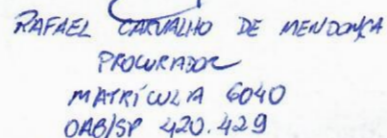 RAFAEL CARVALHO DE MENDONÇA
PROCURADOR
MATRÍCULA 6040
OAB/SP 420.429